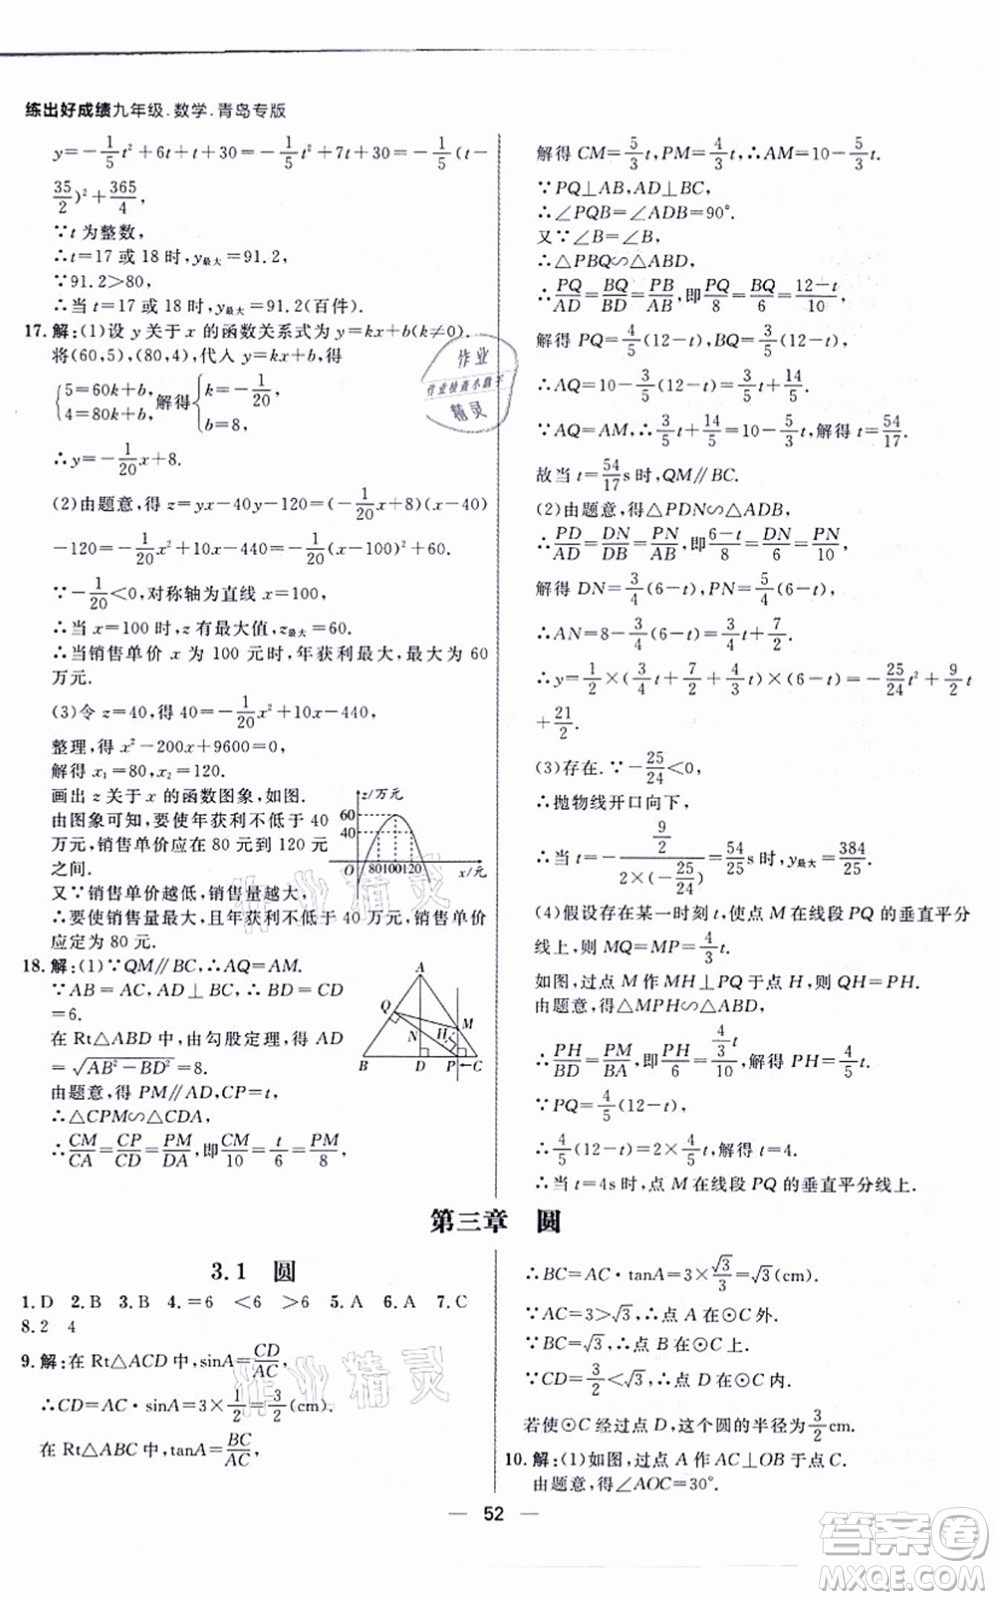 练出好成绩九年级.数学.青岛专版
y=-1/5t²+6t+t+30=-1/5t²+7t+30=-1/5(t-
35/2)²+365/4,
∵t为整数,
∴t=17或18时,y最大=91.2,
∵91.2>80,
∴当t=17或18时,y最大=91.2(百件).
17.解:(1)设y关于x的函数关系式为y=kx+b(k≠0).
将(60,5),(80,4),代人y=kx+b,得
{5=60k+b, 4=80k+b, 解得{k=-1/20, b=8,
∴y=-1/20x+8.
(2)由题意,得z=yx-40y-120=(-1/20x+8)(x-40)
-120=-1/20x²+10x-440=-1/20(x-100)²+60.
∵-1/20<0,对称轴为直线x=100,
∴当x=100时,z有最大值,z最大=60.
∴当销售单价x为100元时,年获利最大,最大为60
万元.
(3)令z=40,得40=-1/20x²+10x-440,
整理,得x²-200x+9600=0,
解得x₁=80,x₂=120.
画出z关于x的函数图象,如图.
由图象可知,要使年获利不低于40
万元,销售单价应在80元到120元
之间.
又∵销售单价越低,销售量越大,
∴要使销售量最大,且年获利不低于40万元,销售单价
应定为80元.
z/万元
60
40
O
80100120
x/元
18.解:(1)∵QM∥BC,∴AQ=AM.
∵AB=AC,AD⊥BC,∴BD=CD
=6.
在Rt△ABD中,由勾股定理,得AD
=√(AB²-BD²)=8.
由题意,得PM∥AD,CP=t,
∴△CPM∽△CDA,
∴CM/CA=CP/CD=PM/DA,即CM/10=t/6=PM/8,
A
Q
M
N
H
B
D
P
C
解得CM=5/3t,PM=4/3t,∴AM=10-5/3t.
∵PQ⊥AB,AD⊥BC,
∴∠PQB=∠ADB=90°.
又∵∠B=∠B,
∴△PBQ∽△ABD,
∴PQ/AD=BQ/BD=PB/AB,即PQ/8=BQ/6=12-t/10,
解得PQ=4/5(12-t),BQ=3/5(12-t),
∴AQ=10-3/5(12-t)=3/5t+14/5.
∵AQ=AM,∴3/5t+14/5=10-5/3t,解得t=54/17.
故当t=54/17s时,QM∥BC.
(2)由题意,得△PDN∽△ADB,
∴PD/AD=DN/DB=PN/AB,即6-t/8=DN/6=PN/10,
解得DN=3/4(6-t),PN=5/4(6-t),
∴AN=8-3/4(6-t)=3/4t+7/2.
∴y=1/2×(3/4t+7/2+4/3t)×(6-t)=-25/24t²+9/2t
+21/2.
(3)存在.∵-25/24<0,
∴抛物线开口向下,
∴当t=-9/2/2×(-25/24)=54/25s时,y最大=384/25.
(4)假设存在某一时刻t,使点M在线段PQ的垂直平分
线上,则MQ=MP=4/3t.
如图,过点M作MH⊥PQ于点H,则QH=PH.
由题意,得△MPH∽△ABD,
∴PH/BD=PM/BA,即PH/6=4/3t/10,解得PH=4/5t.
∵PQ=4/5(12-t),
∴4/5(12-t)=2×4/5t,解得t=4.
∴当t=4s时,点M在线段PQ的垂直平分线上.
第三章 圆
3.1 圆
1.D 2.B 3.B 4.=6 <6 >6 5.A 6.A 7.C
8.2 4
9.解:在Rt△ACD中,sinA=CD/AC,
∴CD=AC·sinA=3×1/2=3/2(cm).
在Rt△ABC中,tanA=BC/AC,
∴BC=AC·tanA=3×√3/3=√3(cm).
∵AC=3>√3,∴点A在⊙C外.
∵BC=√3,∴点B在⊙C上.
∵CD=3/2<√3,∴点D在⊙C内.
若使⊙C经过点D,这个圆的半径为3/2cm.
10.解:(1)如图,过点A作AC⊥OB于点C.
由题意,得∠AOC=30°.
— 52 —
作业
作业检查小助手
精灵
作业精灵
作业精灵
答案卷
MXQE.COM